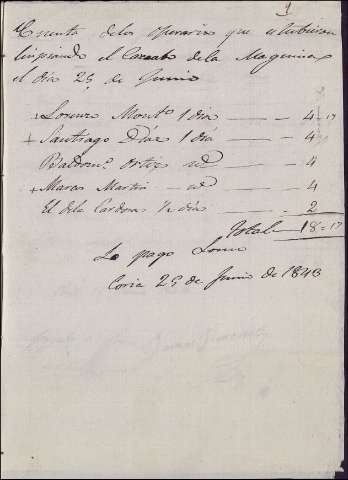 1
Cuenta delos operarios que estubieron
limpiando el de la Maquina
el dia 25 de Junio
Lorenzo Mont.º 1 dia — 4 - 17
+ Santiago Diaz 1 dia — 4
Baldom.º Ortiz id — 4
+ Marcos Martin — id — 4
El dela Cardosa ½ dia — 2
Total 18 = 17
Lo pago
Coria 25 de Junio de 1843